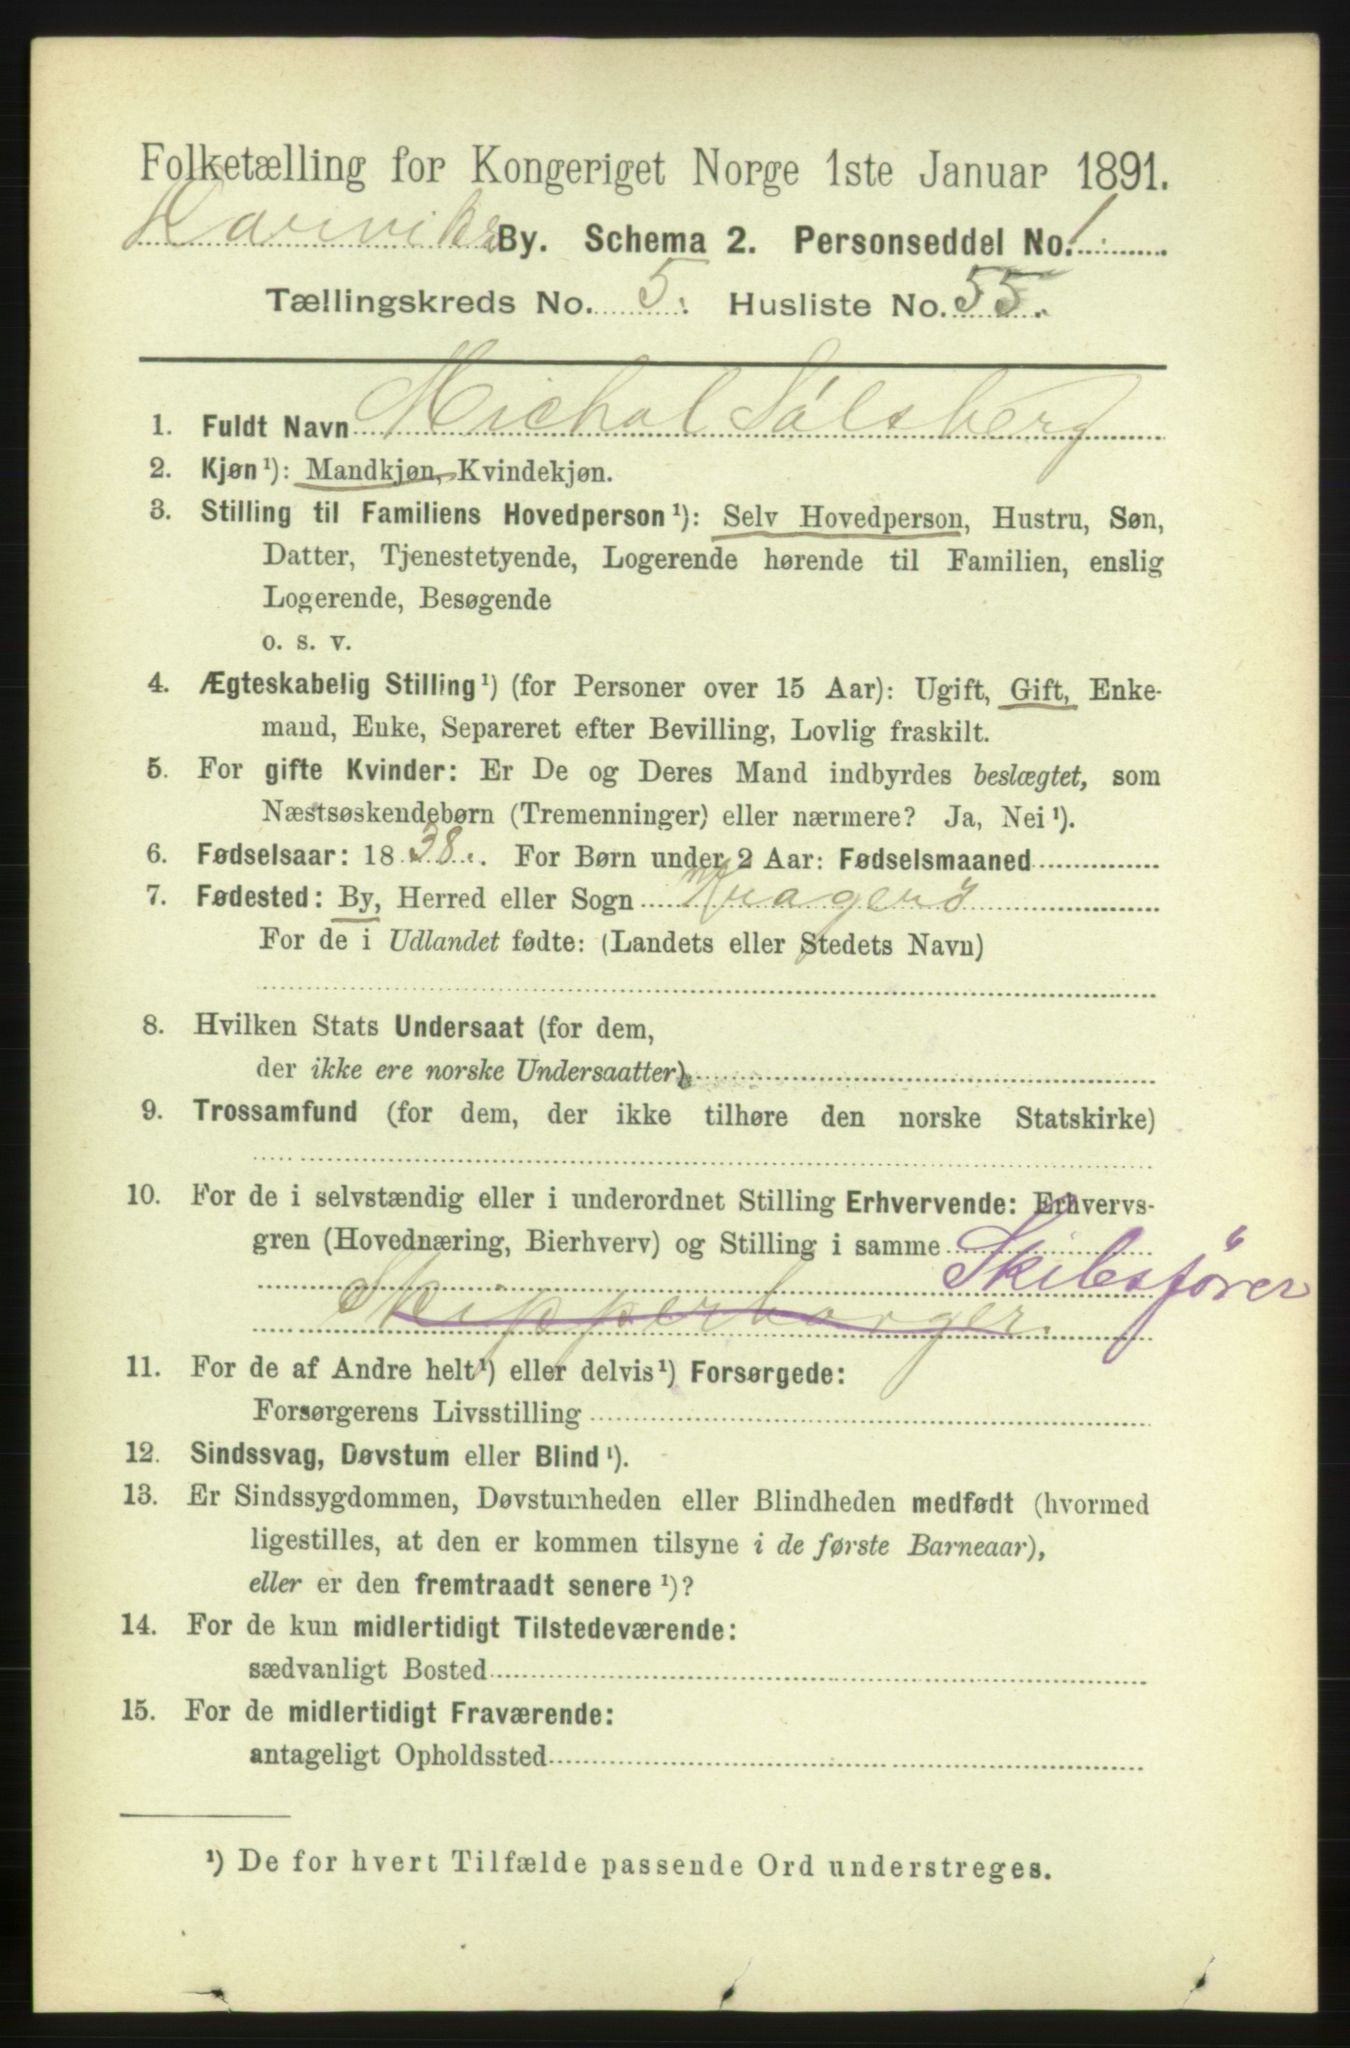 Folketælling for Kongeriget Norge 1ste Januar 1891.
Larviks By. Schema 2. Personseddel No. 1
Tællingskreds No. 5. Husliste No. 55.
1. Fuldt Navn Michal Sølsberg
2. Kjøn¹): Mandkjøn, Kvindekjøn.
3. Stilling til Familiens Hovedperson¹): Selv Hovedperson, Hustru, Søn,
Datter, Tjenestetyende, Logerende hørende til Familien, enslig
Logerende, Besøgende
o. s. v.
4. Ægteskabelig Stilling¹) (for Personer over 15 Aar): Ugift, Gift, Enke-
mand, Enke, Separeret efter Bevilling, Lovlig fraskilt.
5. For gifte Kvinder: Er De og Deres Mand indbyrdes beslægtet, som
Næstsøskendebørn (Tremenninger) eller nærmere? Ja, Nei¹).
6. Fødselsaar: 1838. For Børn under 2 Aar: Fødselsmaaned
7. Fødested: By, Herred eller Sogn Kragerø
For de i Udlandet fødte: (Landets eller Stedets Navn)
8. Hvilken Stats Undersaat (for dem,
der ikke ere norske Undersaatter)
9. Trossamfund (for dem, der ikke tilhøre den norske Statskirke)
10. For de i selvstændig eller i underordnet Stilling Erhvervende: Erhvervs-
gren (Hovednæring, Bierhverv) og Stilling i samme Skibsfører
Skipperborger.
11. For de af Andre helt¹) eller delvis¹) Forsørgede:
Forsørgerens Livsstilling
12. Sindssvag, Døvstum eller Blind¹).
13. Er Sindssygdommen, Døvstumheden eller Blindheden medfødt (hvormed
ligestilles, at den er kommen tilsyne i de første Barneaar),
eller er den fremtraadt senere¹)?
14. For de kun midlertidigt Tilstedeværende:
sædvanligt Bosted
15. For de midlertidigt Fraværende:
antageligt Opholdssted
¹) De for hvert Tilfælde passende Ord understreges.